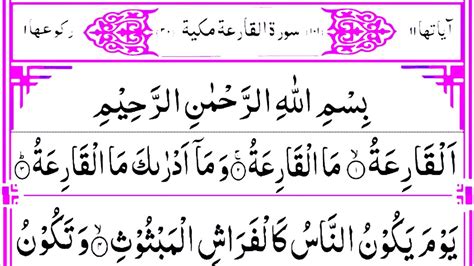 آیاتها ۱۱ (۱۰۱) سورة القارعة مكية (۳۰) ركوعها ۱
بِسْمِ اللهِ الرَّحْمٰنِ الرَّحِيْمِ
اَلْقَارِعَةُ ۙ﴿۱﴾ مَا الْقَارِعَةُ ۚ﴿۲﴾ وَمَاۤ اَدْرٰىكَ مَا الْقَارِعَةُ ؕ﴿۳﴾
يَوْمَ يَكُوْنُ النَّاسُ كَالْفَرَاشِ الْمَبْثُوْثِ ۙ﴿۴﴾ وَ تَكُوْنُ